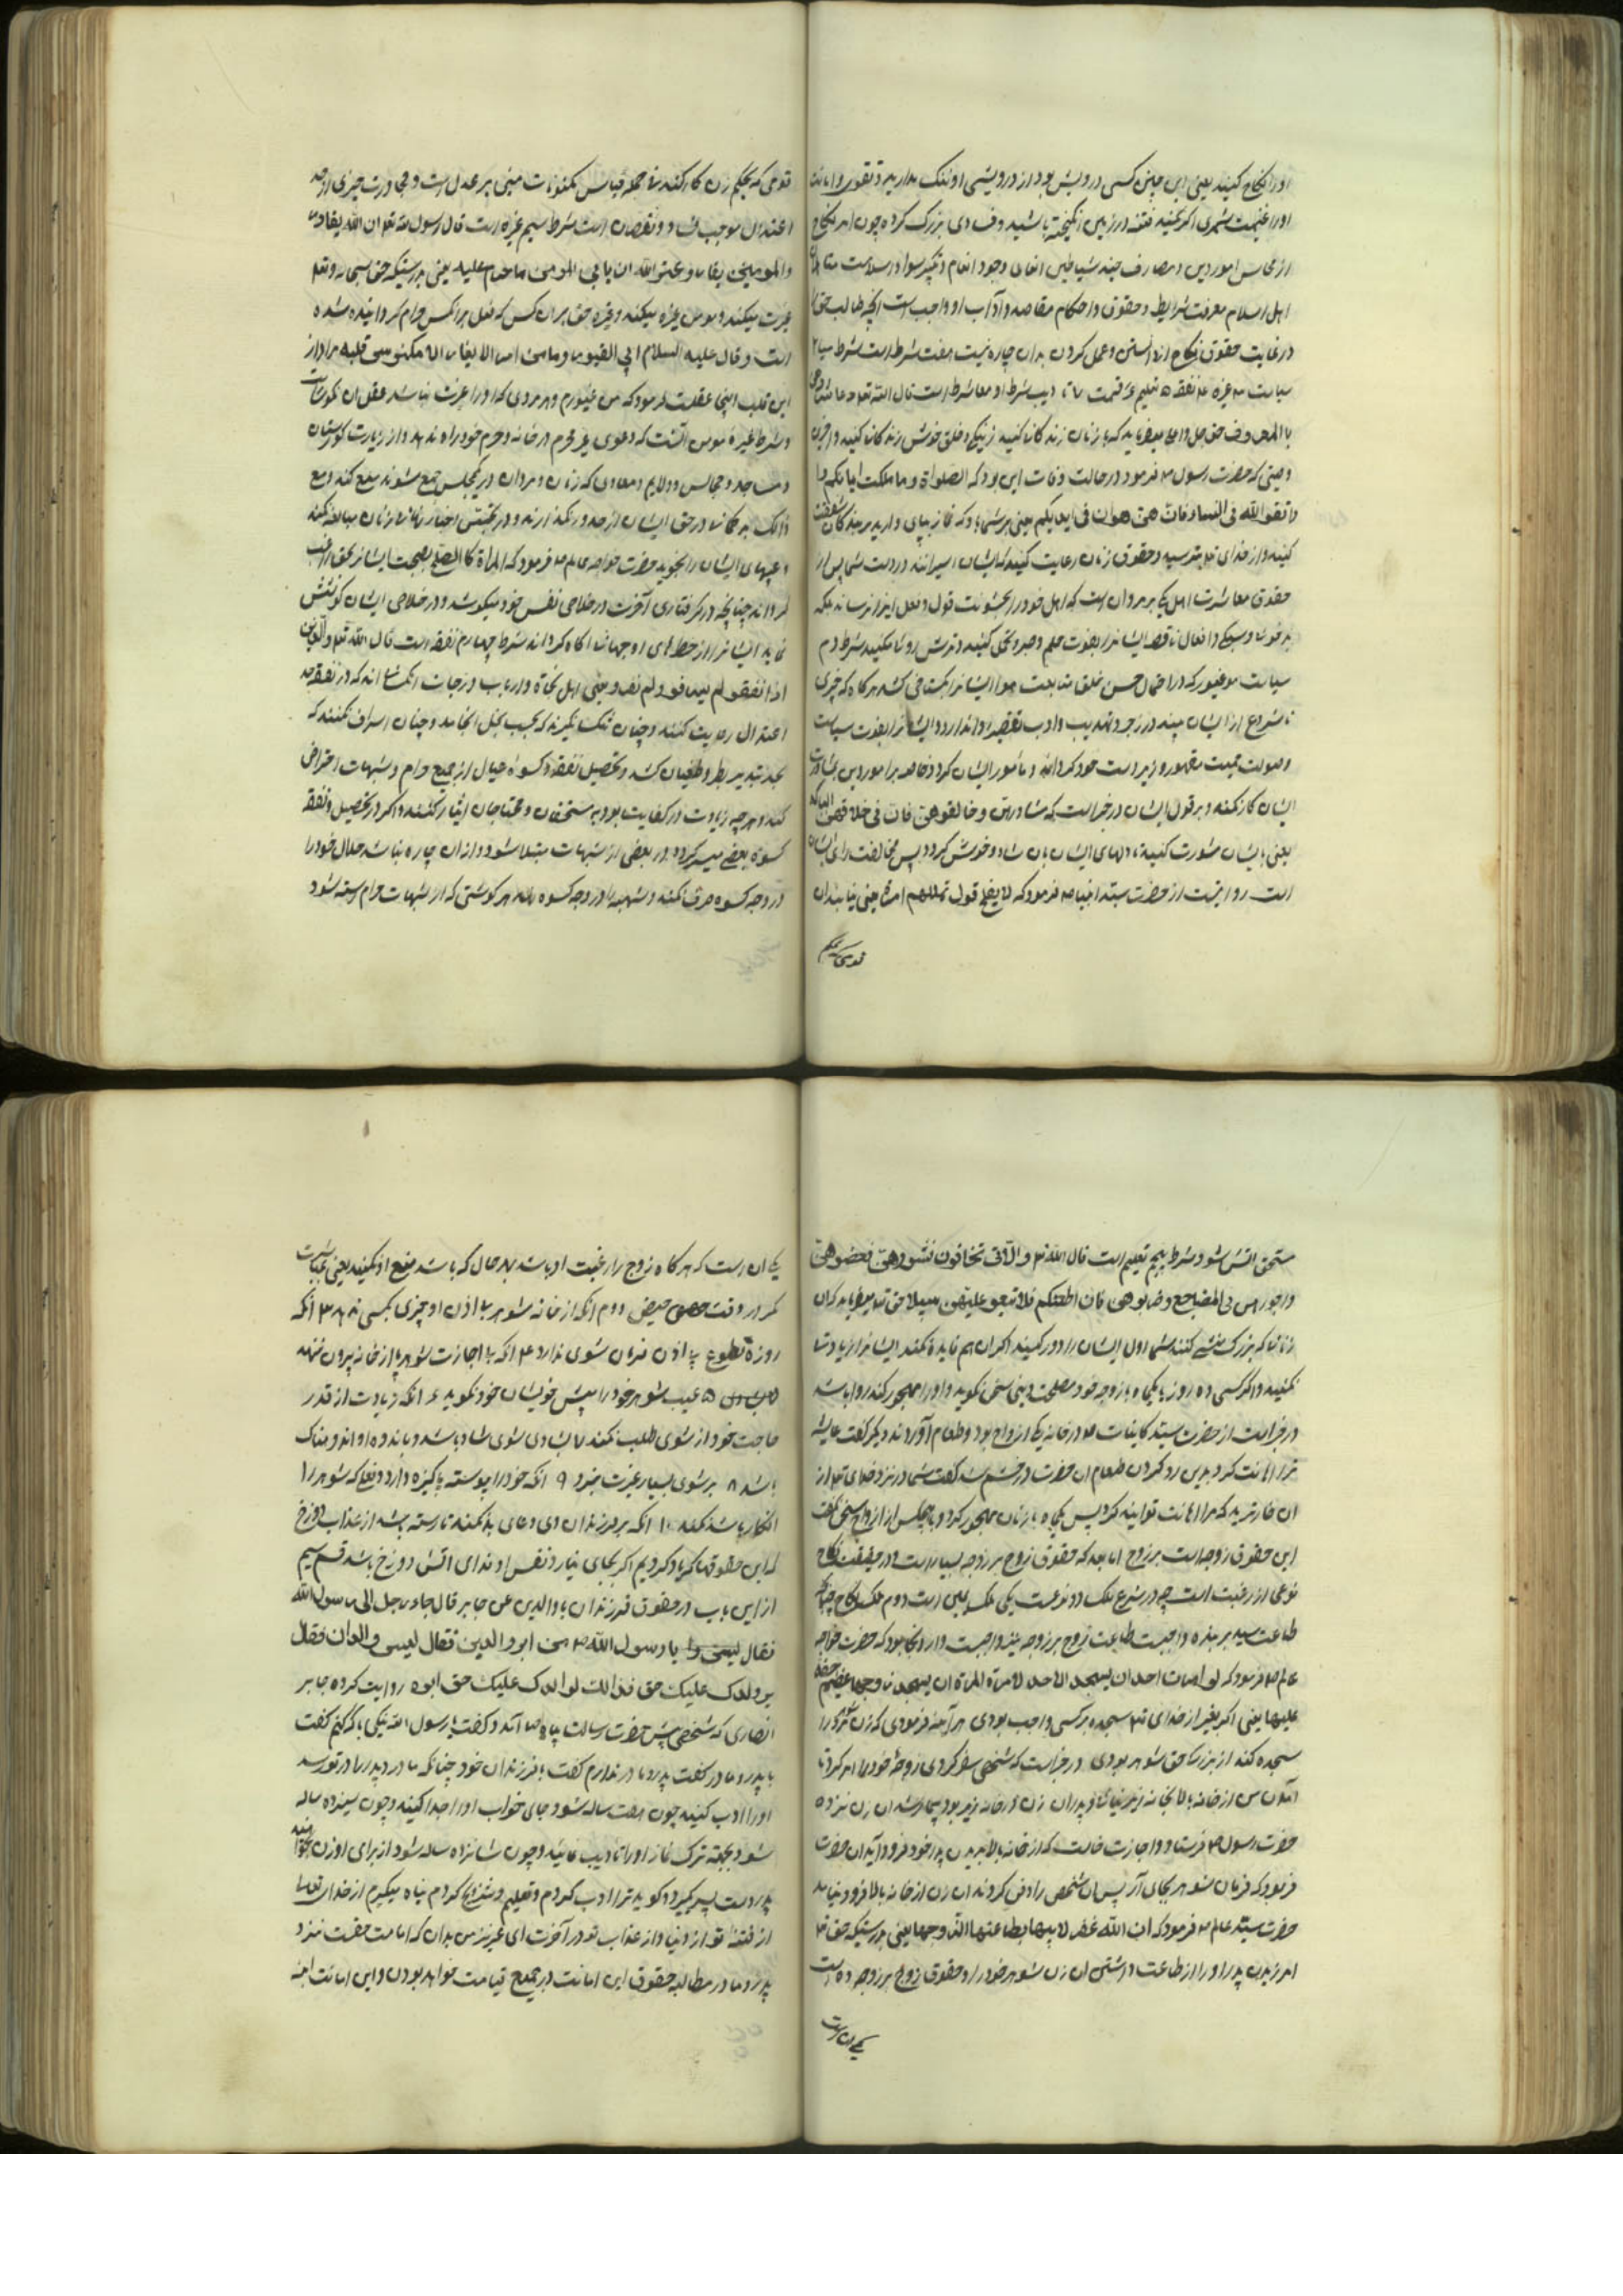 اورا نکاح کنید یعنی این چنین کسی درویش بود از درویشی او ننگ مدارید و تقوی و امانت
اورا غنیمت شمرید اگر نکنید فتنه در زمین انگیخته باشید و فسادی بزرگ کرده چون امر نکاح
از محاسن امور دین و مصارف شیاطین وجود انعام
اهل اسلام معرفت شرایط و حقوق و احکام مقاصد و آداب او واجب است آنچه طالب حق را
در رعایت حقوق نکاح از دانستن و عمل کردن بدان چاره نیست هفت شرط است شرط
سیاست ۳ غیره ۴ نفقه ۵ تعلیم ۶ قسمت ۷ تادیب شرط او معاشرت است قال الله تعالی
با المعروف حق جل و اعلی میفرماید که با زنان زندگانی کنید به نیکی و خلق خوش زندگانی کنید و آخرین
وصیتی که حضرت رسول فرمود در حالت وفات این بود که الصلواة و ما ملکت ایمانکم
واتقوا الله فی النساء فان هن عوان فی ایدیکم یعنی بر شما باد که نماز بپای دارید بر بندگان شفقت
کنید و از خدای بترسید و حقوق زنان رعایت کنید که ایشان اسیرانند در دست شما پس از
حقوق معاشرت اهل یکی بر مردان است که اهل خود را بخشونت قول و فعل ایذا نرساند بلکه
بد خوئی و افعال ناقصه ایشانرا بقوت حلم و صبر و تحمل کنند و ترش روئی نکنند شرط دوم
سیاست در اجمال حسن خلق متابعت هوا ایشانرا گستاخی کشد هرگاه که چیزی
نامشروع از ایشان بیند در زجر و تهدیب و ادب تقصیر روا ندارد و ایشانرا بقوت سیاست
و صولت حمیت مقهور و زیر دست خود گرداند و مامور ایشان نگردد خاصه در امور دین بمشاورت
ایشان کار نکند و بر قول ایشان در خبر است که شاورهن و خالفوهن فان فی خلافهن البرکه
یعنی با ایشان مشورت کنید تا دلهای ایشان بآن شاد و خوش گردد پس مخالفت رای ایشان
است روایتست از حضرت سید انبیا فرمود که لا یفلح قوم تملکهم امرأة یعنی نیابند آن
قومی که بحکم
قومی که بحکم زن کار کنند جمله قیاس مکنونات مبنی بر عدل است و مجاورت چیزی از حد
اعتدال موجب فساد و نقصان است شرط سیم غیره است قال رسول الله ان الله یغار
والمومنین یغار و غیرة الله ان یاتی المومن ما حرم علیه یعنی بدرستیکه حق سبحانه و تعالی
غیرت میکند و مومن غیره میکند و غیره حق بر آن کس که فعل بر آنکس حرام گردانیده شده
است و قال علیه السلام انی لغیور و ما من امرء لا یغار الا منکوس قلبه مراد از
این قلب اینجا عقلست فرمود که من غیورم و هر مردی که او را غیرت نباشد عقل آن نگونسار است
و شرط غیرة مومن آنست که دعوی غیر محرم در خانه و حرم خود راه ندهد و از زیارت گورستان
و مساجد و مجالس و ولایم و معادن که زنان و مردان در یک مجلس جمع شوند منع کند و مع
ذالک بدگمانی در حق ایشان از حد در نگذارند و در تجسس اخبار زنان مبالغه نکند
و عیبهای ایشان را نجوید حضرت خواجه عالم فرمود که المرأة کا الضلع
گرداند چنانچه در گرفتاری آخرت در خلاصی نفس خود میکوشد و در خلاصی ایشان کوشش
نماید ایشانرا از خطرهای آن جهانی آگاه گرداند شرط چهارم نفقه است قال الله تعالی والذین
اذا انفقو لم یسرفو ولم یقترو یعنی اهل نجاة و ارباب درجات آنکسانند که در نفقه حد
اعتدال رعایت کنند و چنان تنگ نگیرند که بحسب بخل انجامد و چنان اسراف نکنند که
بحد تبذیر و طغیان کشد و تحصیل نفقه و کسوه عیال از جمیع حرام و شبهات احتراض
کند و هر چه زیادت از کفایت بود به مستحقان و محتاجان ایثار کنند و اگر در تحصیل نفقه
کسوه بعضی میسر گردد و در بعضی از شبهات مبتلا شود و از آن چاره نباشد حلال خود را
در وجه کسوه صرف نکند و شبهه را در وجه کسوه نهد هر گوشتی که از شبهات حرام رسته شود
مستحق آتش شود شرط پنجم تعلیم است قال الله و الاتی تخافون نشوزهن فعضوهن
واهجروهن فی المضاجع وضربوهن فان اطعنکم فلا تبغو علیهن سبیلا حق تعالی میفرماید که آن
زنانی که بزرگ منشی کنند شما اول ایشان را دور کنید اگر آن هم فایده نکند ایشانرا زیادت
نکنید و اگر کسی ده روز یا یکماه با زوجه خود مصلحت دینی سخن نگوید و او را مهجور کند روا باشد
در خبر است از حضرت سید کاینات در خانه یکی ازواج بود و طعام آوردند دیگر گفت عایشه
ترا اهانت کرد بدین رد کردن طعام آن حضرت در خشم شد گفت شما در نزد خدای تعالی از
آن خارترید که مرا اهانت توانید کرد پس یکماه با زنان مهجور کرد و با هیچکس از ازواج سخن نگفت
این حقوق زوجه است بر زوج اما بعد که حقوق زوج بر زوجه بسیار است و در حقیقت نکاح
نوعی از رقیت است چه در شرع ملک دو نوعست یکی ملک یمین است دوم ملک نکاح چنانکه
طاعت سید بر بنده واجبست طاعت زوج بر زوجه نیز واجبست و از آنجا بود که حضرت خواجه
عالم فرمود که لو امرت احد ان یسجد الاحد لامرة المراة ان یسجد زوجها عظیم حقه
علیها یعنی اگر بغیر از خدای سجده بر کسی واجب بودی هر آینه فرمودی که زن شوهر را
سجده کند از بزرگی حق شوهر بودی در خبر است که شخصی سفر کردی زوجه خود را امر کرد تا
آمدن من از خانه بالا بخانه زیر نیائی و پدر آن زن در خانه زیر بود بیمار شد آن زن نزد
حضرت رسول فرستاد و اجازت خواست که از خانه بالا بدیدن پدر خود فرود آید آن حضرت
فرمود که فرمان شوهر بجای آر پس آن شخص را دفن کردند آن زن از خانه بالا فرود نیامد
حضرت سید عالم فرمود که ان الله غفر لابیها بطاعتها لزوجها یعنی بدرستیکه حق تعالی
آمرزیدن پدر او را از طاعت داشتن آن زن شوهر خود را و حقوق زوج بر زوجه ده است
یکی آن است
یکی آن است که هرگاه زوج را رغبت او باشد بهر حال که باشد منع او نکند یعنی مباشرت
مگر در وقت حیض دوم آنکه از خانه شوهر بی اذن او چیزی بکسی ندهد ۳ آنکه
روزه تطوع بی اذن فرمان شوی ندارد ۴ آنکه بی اجازت شوهر پا از خانه بیرون ننهد
۵ عیب شوهر خود را پیش خویشان خود نگوید ۶ آنکه زیادت از قدر
حاجت خود از شوی طلب نکند ۷ بشادی شوی شاد باشد و باندوه او اندوهناک
باشد ۸ بر شوی بسیار غیرت نبرد ۹ آنکه خود را پیوسته پاکیزه دارد و فعلی که شوهر را
انکار باشد نکند ۱۰ آنکه بر فرزندان وی دعای بد نکند تا رسته باشد از عذاب دوزخ
که این حقوقها که یاد کردیم اگر بجای نیارد نفس او فدای آتش دوزخ باشد قسم سیم
از این باب در حقوق فرزندان با والدین عن جابر قال جاء رجل الی رسول الله
فقال یا رسول الله من ابر والدین فقال لیس والدان فقال
بر ولدک علیک حق فذالک لوالدک علیک حق ابوه روایت کرده جابر
انصاری که شخصی پیش حضرت رسالت پناه آمد و گفت یا رسول الله نیکی با که کنم گفت
با پدر و مادر گفت پدر و مادر ندارم گفت با فرزندان خود چنانکه مادر و پدر را در تو رسد
او را ادب کنید چون هفت ساله شود جای خواب او را جدا کنید و چون سیزده ساله
شود بجهته ترک نماز او را تادیب نمائید و چون شانزده ساله شود از برای او زن بخواهد
پدر دست پسر گیرد و گوید ترا ادب کردم و تعلیم و نکاح کردم پناه میگیرم از خدای تعالی
از فتنه تو از دنیا و از عذاب تو در آخرت ای عزیز من بدان که امانت حقست نزد
پدر و مادر مطالبه حقوق این امانت در جمیع قیامت خواهد بودن و این امانت